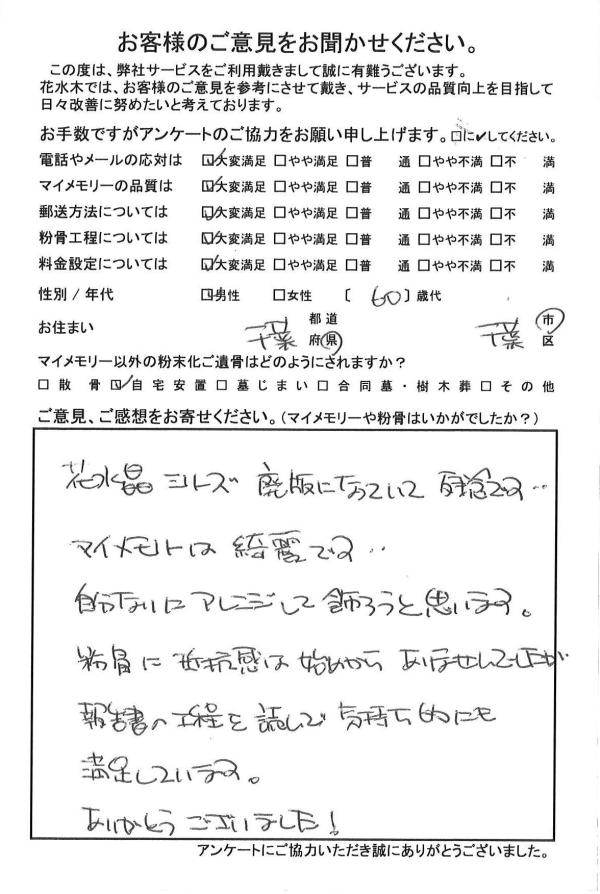 お客様のご意見をお聞かせください。
この度は、弊社サービスをご利用戴きまして誠に有難うございます。
花水木では、お客様のご意見を参考にさせて戴き、サービスの品質向上を目指して
日々改善に努めたいと考えております。
お手数ですがアンケートのご協力をお願い申し上げます。□に✔してください。
電話やメールの応対は ☑大変満足 □やや満足 □普 通 □やや不満 □不 満
マイメモリーの品質は ☑大変満足 □やや満足 □普 通 □やや不満 □不 満
郵送方法については ☑大変満足 □やや満足 □普 通 □やや不満 □不 満
粉骨工程については ☑大変満足 □やや満足 □普 通 □やや不満 □不 満
料金設定については ☑大変満足 □やや満足 □普 通 □やや不満 □不 満
性別 / 年代 ☑男性 □女性 〔 60 〕歳代
お住まい 千葉 都道府県 千葉 市区
マイメモリー以外の粉末化ご遺骨はどのようにされますか？
□散 骨 ☑自宅安置 □墓じまい □合同墓・樹木葬 □その他
ご意見、ご感想をお寄せください。（マイメモリーや粉骨はいかがでしたか？）
花水晶シリーズ 廃版になっていて 残念です‥
マイメモリーは 綺麗です‥
自分なりに アレンジして 飾ろうと思います。
粉骨に 抵抗感は 始めから ありませんでしたが
報告書の工程を 読んで 気持ち的にも
満足しています。
ありがとうございました！
アンケートにご協力いただき誠にありがとうございました。